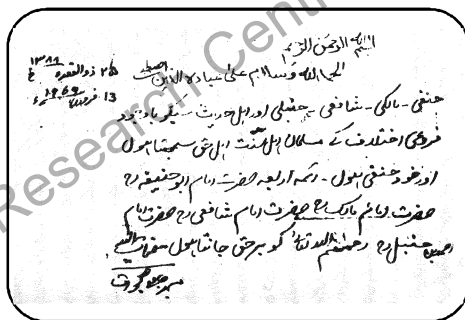 بسم اللہ الرحمن الرحیم
الحمد للہ وسلام علی عبادہ الذین اصطفی
۲۵ ذوالقعدہ ۱۳۸۸ھ
13 فروری 1969ء
حنفی۔ مالکی۔ شافعی۔ حنبلی اور اہل حدیث سب کو باوجود
فروعی اختلاف کے مسلمان اہل سنت سمجھتا ہوں
اور خود حنفی ہوں۔ ائمہ اربعہ حضرت امام ابوحنیفہ رح
حضرت امام مالک رح حضرت امام شافعی رح حضرت امام
احمد بن حنبل رح رحمہم اللہ تعالیٰ کو برحق جانتا ہوں
Research Centre